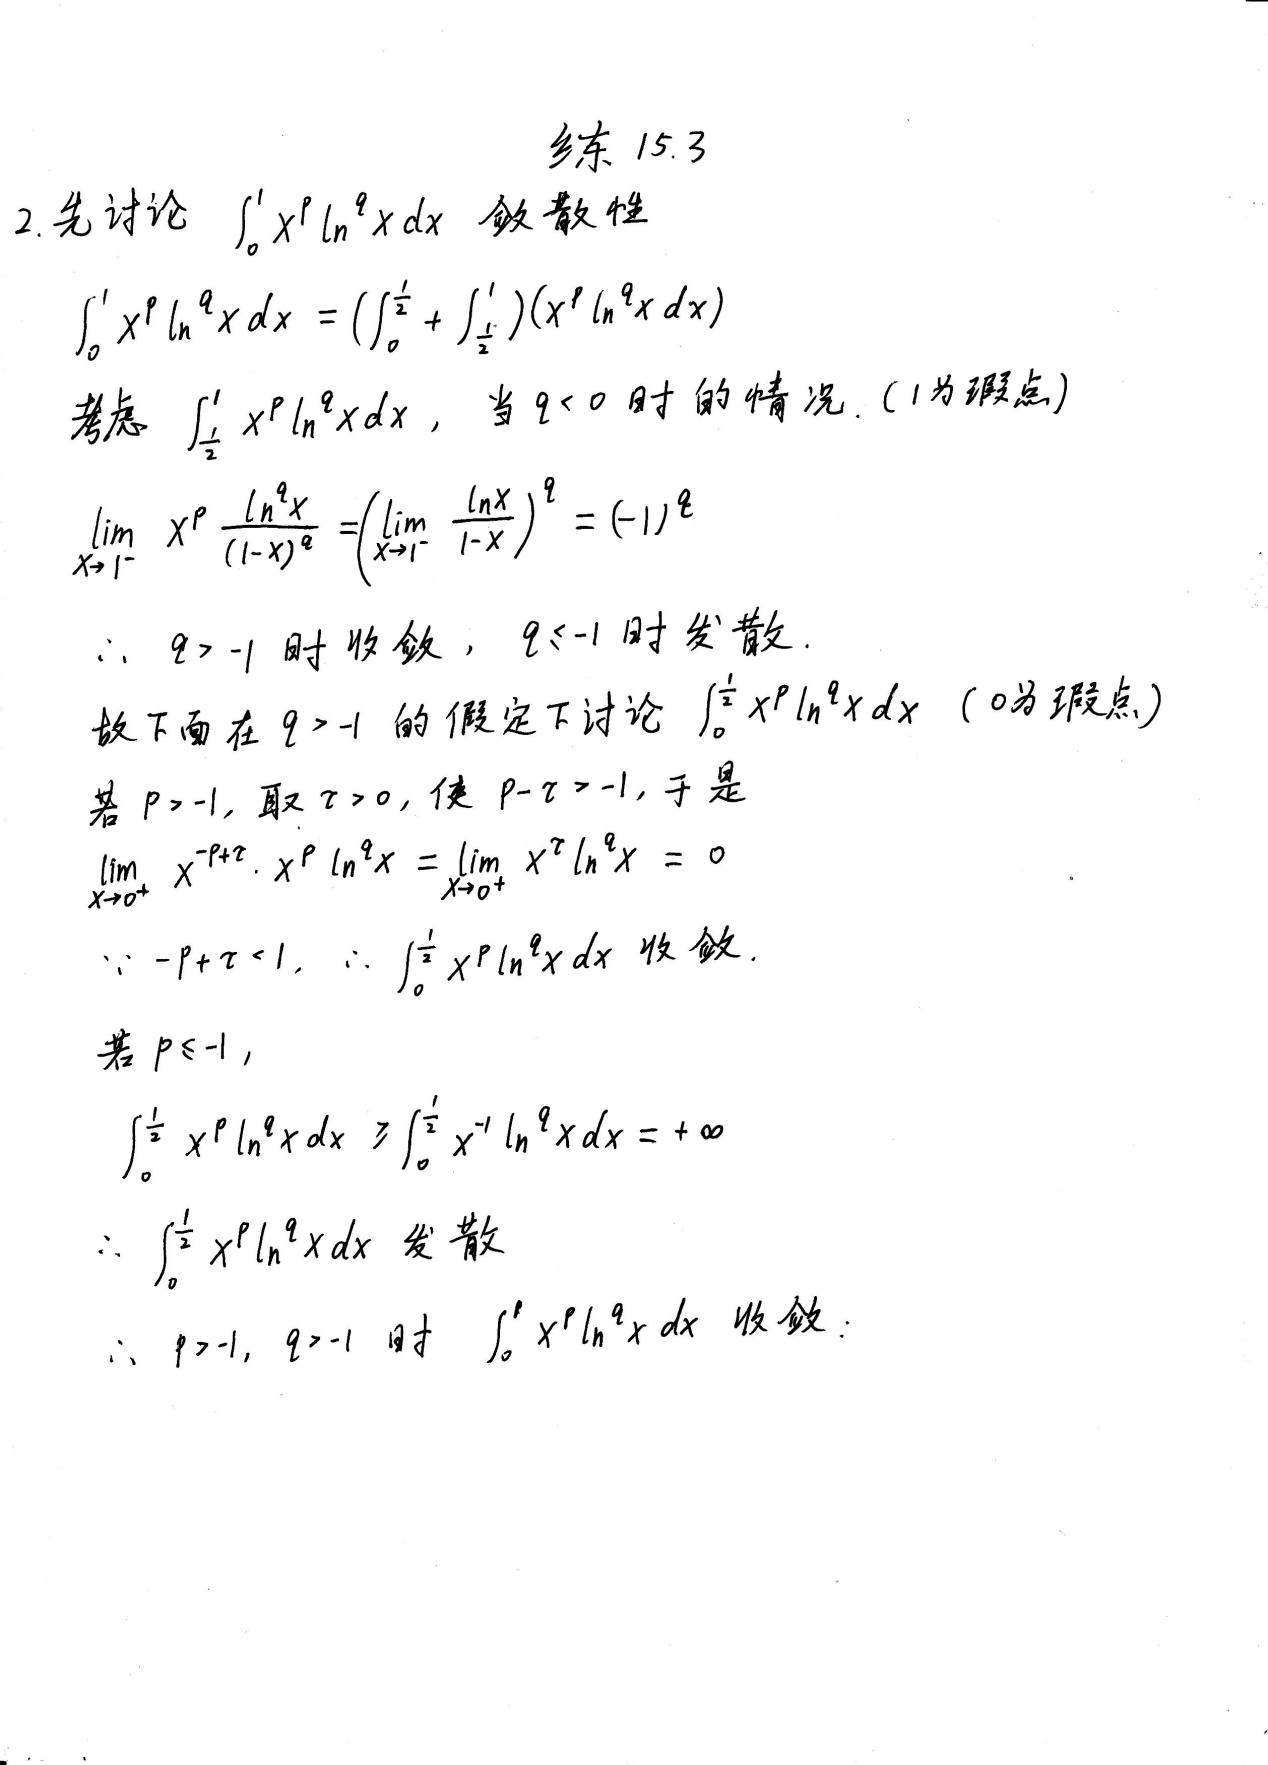 练 15.3
2. 先讨论 ∫₀¹ x^p ln^q x dx 敛散性
∫₀¹ x^p ln^q x dx = (∫₀^{1/2} + ∫_{1/2}^1)(x^p ln^q x dx)
考虑 ∫_{1/2}^1 x^p ln^q x dx, 当 q<0 时的情况. (1为瑕点)
lim_{x→1⁻} x^p \frac{ln^q x}{(1-x)^q} = (lim_{x→1⁻} \frac{ln x}{1-x})^q = (-1)^q
∴ q>-1 时收敛, q≤-1时发散.
故下面在 q>-1 的假定下讨论 ∫₀^{1/2} x^p ln^q x dx (0为瑕点)
若 p>-1, 取 τ>0, 使 p-τ>-1, 于是
lim_{x→0⁺} x^{-p+τ} · x^p ln^q x = lim_{x→0⁺} x^τ ln^q x = 0
∵ -p+τ<1, ∴ ∫₀^{1/2} x^p ln^q x dx 收敛.
若 p≤-1,
∫₀^{1/2} x^p ln^q x dx ≥ ∫₀^{1/2} x^{-1} ln^q x dx = +∞
∴ ∫₀^{1/2} x^p ln^q x dx 发散
∴ p>-1, q>-1 时 ∫₀¹ x^p ln^q x dx 收敛.